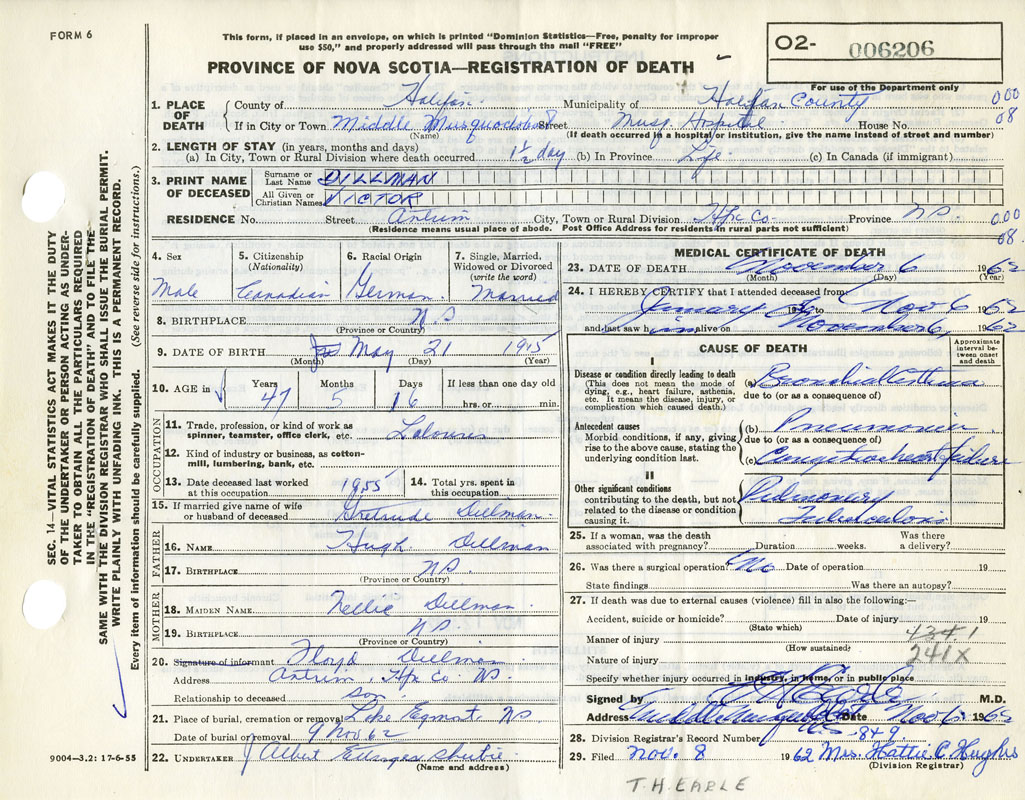 FORM 6
This form, if placed in an envelope, on which is printed "Dominion Statistics—Free, penalty for improper
use $50," and properly addressed will pass through the mail "FREE"
PROVINCE OF NOVA SCOTIA—REGISTRATION OF DEATH
O2- 006206
For use of the Department only
1. PLACE OF DEATH
County of Halifax Municipality of Halifax County 000
If in City or Town Middle Musquodoboit Street Musq. Hospital House No. 08
(Name) (If death occurred in a hospital or institution, give the name instead of street and number)
2. LENGTH OF STAY (in years, months and days)
(a) In City, Town or Rural Division where death occurred 1½ day (b) In Province Life (c) In Canada (if immigrant)
3. PRINT NAME OF DECEASED
Surname or Last Name DILLMAN
All Given or Christian Names VICTOR
RESIDENCE No. Street Antrim City, Town or Rural Division Hfx Co. Province N.S. 000
(Residence means usual place of abode. Post Office Address for residents in rural parts not sufficient) 08.
4. Sex Male
5. Citizenship (Nationality) Canadian
6. Racial Origin German
7. Single, Married, Widowed or Divorced (write the word) Married
8. BIRTHPLACE N.S.
(Province or Country)
9. DATE OF BIRTH May 21 1915
(Month) (Day) (Year)
10. AGE in Years 47 Months 5 Days 16 If less than one day old hrs. or min.
OCCUPATION
11. Trade, profession, or kind of work as spinner, teamster, office clerk, etc. Labourer
12. Kind of industry or business, as cotton-mill, lumbering, bank, etc.
13. Date deceased last worked at this occupation 1955
14. Total yrs. spent in this occupation
15. If married give name of wife or husband of deceased Gertrude Dillman
FATHER
16. NAME Hugh Dillman
17. BIRTHPLACE N.S.
(Province or Country)
MOTHER
18. MAIDEN NAME Nellie Dillman
19. BIRTHPLACE N.S.
(Province or Country)
20. Signature of informant Floyd Dillman
Address Antrim, Hfx Co. N.S.
Relationship to deceased son
21. Place of burial, cremation or removal Lake Egmont, N.S
Date of burial or removal 9 Nov 62
22. UNDERTAKER Albert
(Name and address)
9004—3.2: 17-6-55
SEC. 14—VITAL STATISTICS ACT MAKES IT THE DUTY
OF THE UNDERTAKER OR PERSON ACTING AS UNDER-
TAKER TO OBTAIN ALL THE PARTICULARS REQUIRED
IN THE "REGISTRATION OF DEATH" AND TO FILE THE
SAME WITH THE DIVISION REGISTRAR WHO SHALL ISSUE THE BURIAL PERMIT.
WRITE PLAINLY WITH UNFADING INK. THIS IS A PERMANENT RECORD.
Every item of information should be carefully supplied. (See reverse side for instructions.)
MEDICAL CERTIFICATE OF DEATH
23. DATE OF DEATH November 6 1962
(Month) (Day) (Year)
24. I HEREBY CERTIFY that I attended deceased from:
January 19 to Nov 6 1962
and last saw him alive on November 6, 1962
CAUSE OF DEATH
Approximate interval between onset and death
I
Disease or condition directly leading to death
(This does not mean the mode of dying, e.g., heart failure, asthenia, etc. It means the disease, injury, or complication which caused death.)
(a) Bronchial Asthma
due to (or as a consequence of)
Antecedent causes
Morbid conditions, if any, giving rise to the above cause, stating the underlying condition last.
(b) Pneumonia
due to (or as a consequence of)
(c) Congestive heart failure
II
Other significant conditions
contributing to the death, but not related to the disease or condition causing it.
Pulmonary
Tuberculosis
25. If a woman, was the death associated with pregnancy? Duration weeks. Was there a delivery?
26. Was there a surgical operation? No Date of operation 19
State findings Was there an autopsy?
27. If death was due to external causes (violence) fill in also the following:—
Accident, suicide or homicide? Date of injury 19
(State which)
Manner of injury 434.1
(How sustained)
Nature of injury 241X
Specify whether injury occurred in industry, in home, or in public place
Signed by M.D.
Address Middle Musquodoboit Date Nov 6 1962
28. Division Registrar's Record Number 849
29. Filed Nov. 8 1962 Mrs. Hattie C Hughes
(Division Registrar)
T.H. EARLE